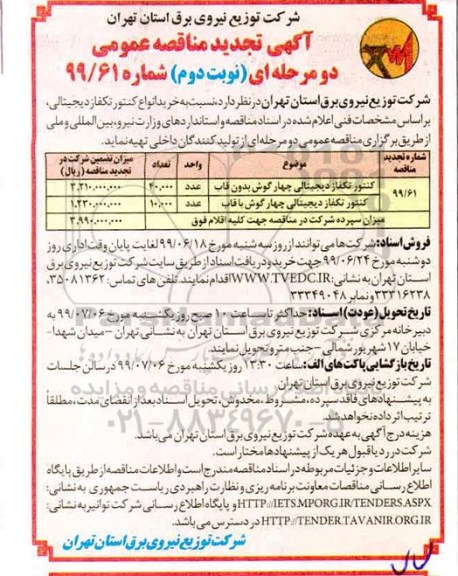 شرکت توزیع نیروی برق استان تهران
آگهی تجدید مناقصه عمومی
دو مرحله ای (نوبت دوم) شماره ۹۹/۶۱
شرکت توزیع نیروی برق استان تهران در نظر دارد، نسبت به خرید انواع کنتور تکفاز دیجیتالی،
بر اساس مشخصات فنی اعلام شده در اسناد مناقصه و استانداردهای وزارت نیرو، بین المللی و ملی
از طریق برگزاری مناقصه عمومی دو مرحله ای از تولید کنندگان داخلی تهیه نماید.
شماره تجدید مناقصه موضوع واحد تعداد میزان تضمین شرکت در تجدید مناقصه (ریال)
۹۹/۶۱ کنتور تکفاز دیجیتالی چهار گوش بدون قاب عدد ۲۰,۰۰۰
کنتور تکفاز دیجیتالی چهار گوش با قاب عدد ۱۰,۰۰۰ ۱,۲۳۰,۰۰۰,۰۰۰
میزان سپرده شرکت در مناقصه جهت کلیه اقلام فوق ۳,۹۹۰,۰۰۰,۰۰۰
فروش اسناد: شرکت ها می توانند از روز سه شنبه مورخ ۹۹/۰۶/۱۸ لغایت پایان وقت اداری روز
دوشنبه مورخ ۹۹/۰۶/۲۴ جهت خرید و دریافت اسناد از طریق سایت شرکت توزیع نیروی برق
استان تهران به نشانی: WWW.TVEDC.IR اقدام نمایند. تلفن های تماس: ۳۵۰۸۱۳۶۲،
۳۳۲۱۶۲۳۸ و نمابر ۳۳۳۴۹۰۴۸
تاریخ تحویل (عودت) اسناد: حداکثر تا ساعت ۱۰ صبح روز یکشنبه مورخ ۹۹/۰۷/۰۶ به
دبیرخانه مرکزی شرکت توزیع نیروی برق استان تهران به نشانی تهران – میدان شهدا-
خیابان ۱۷ شهریور شمالی – جنب مترو تحویل نمایند.
تاریخ بازگشایی پاکت های الف: ساعت ۱۳:۳۰ روز یکشنبه مورخ ۹۹/۰۷/۰۶ در سالن جلسات
شرکت توزیع نیروی برق استان تهران
به پیشنهادهای فاقد سپرده، مشروط، مخدوش، تحویل اسناد بعد از انقضای مدت، مطلقا
ترتیب اثر داده نخواهد شد.
هزینه درج آگهی به عهده شرکت توزیع نیروی برق استان تهران می باشد.
شرکت در رد یا قبول هر یک از پیشنهادها مختار است.
سایر اطلاعات و جزئیات مربوطه در اسناد مناقصه مندرج است و اطلاعات مناقصه از طریق پایگاه
اطلاع رسانی مناقصات معاونت برنامه ریزی و نظارت راهبردی ریاست جمهوری به نشانی:
HTTP://IETS.MPORG.IR/TENDERS.ASPX و پایگاه اطلاع رسانی شرکت توانیر به نشانی:
HTTP://TENDER.TAVANIR.ORG.IR در دسترس می باشد.
شرکت توزیع نیروی برق استان تهران
۰۲۱-۸۸۳۴۹۶۷۰-۵